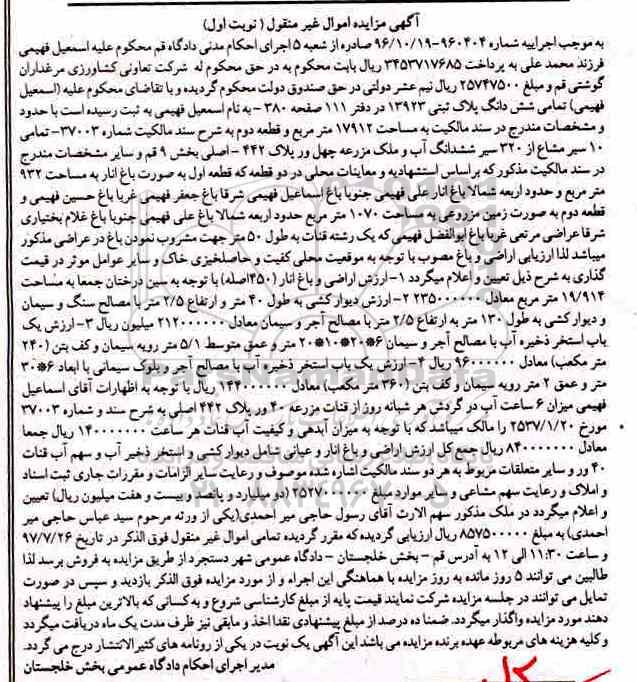 آگهی مزایده اموال غیر منقول ( نوبت اول)
به موجب اجراییه شماره ۹۶۰۴۰۴-۹۶/۱۰/۱۹ صادره از شعبه ۵ اجرای احکام مدنی دادگاه قم محکوم علیه اسمعیل فهیمی
فرزند محمد علی به پرداخت ۳۴۵۳۷۱۷۶۸۵ ریال بابت محکوم به در حق محکوم له شرکت تعاونی کشاورزی مرغداران
گوشتی قم و مبلغ ۲۵۷۴۷۵۰۰ ریال نیم عشر دولتی در حق صندوق دولت محکوم گردیده و با تقاضای محکوم علیه (اسمعیل
فهیمی) تمامی شش دانگ پلاک ثبتی ۱۳۹۲۳ در دفتر ۱۱۱ صفحه ۳۸۰ - به نام اسمعیل فهیمی به ثبت رسیده است با حدود
و مشخصات مندرج در سند مالکیت به مساحت ۱۷۹۱۲ متر مربع و قطعه دوم به شرح سند مالکیت شماره ۳۷۰۰۳- تمامی
۱۰ سیر مشاع از ۳۲۰ سیر ششدانگ آب و ملک مزرعه چهل ور پلاک ۴۴۲ - اصلی بخش ۹ قم و سایر مشخصات مندرج
در سند مالکیت مذکور که براساس استشهادیه و معاینات محلی در دو قطعه که قطعه اول به صورت باغ انار به مساحت ۹۳۲
متر مربع و حدود اربعه شمالا باغ انار علی فهیمی جنوبا باغ اسماعیل فهیمی شرقا باغ جعفر فهیمی غربا باغ حسین فهیمی و
قطعه دوم به صورت زمین مزروعی به مساحت ۱۰۷۰ متر مربع حدود اربعه شمالا باغ علی فهیمی جنوبا باغ غلام بختیاری
شرقا عراضی مرتعی غربا باغ ابوالفضل فهیمی که یک رشته قنات به طول ۵۰ متر جهت مشروب نمودن باغ در عراضی مذکور
میباشد لذا ارزیابی اراضی و باغ مصوب با توجه به موقعیت محلی کفیت و حاصلخیزی خاک و سایر عوامل موثر در قیمت
گذاری به شرح ذیل تعیین و اعلام میگردد ۱- ارزش اراضی و باغ انار (۴۵۰اصله) با توجه به سین درختان جمعا به مساحت
۱۹/۹۱۴ متر مربع معادل ۲۲۳۵۰۰۰۰۰۰ ۲- ارزش دیوار کشی به طول ۴۰ متر و ارتفاع ۲/۵ متر با مصالح سنگ و سیمان
و دیوار کشی به طول ۱۳۰ متر به ارتفاع ۲/۵ متر با مصالح آجر و سیمان معادل ۲۱۲۰۰۰۰۰۰ میلیون ریال ۳- ارزش یک
باب استخر ذخیره آب با مصالح آجر و سیمان ۶*۲۰*۱۰*۲۰ متر و عمق متوسط ۵/۱ متر رویه سیمان و کف بتن (۲۴۰
متر مکعب) معادل ۹۶۰۰۰۰۰۰ ریال ۴- ارزش یک باب استخر ذخیره آب با مصالح آجر و بلوک سیمانی با ابعاد ۶*۳۰
متر و عمق ۲ متر رویه سیمان و کف بتن (۳۶۰ متر مکعب) معادل ۱۴۴۰۰۰۰۰۰ ریال با توجه به اظهارات آقای اسماعیل
فهیمی میزان ۶ ساعت آب در گردش هر شبانه روز از قنات مزرعه ۴۰ ور پلاک ۴۴۲ اصلی به شرح سند و شماره ۳۷۰۰۳
مورخ ۲۵۳۷/۱/۲۰ را مالک میباشد که با توجه به میزان آبدهی و کیفیت آب قنات هر ساعت ۱۴۰۰۰۰۰۰۰ ریال جمعا
معادل ۸۴۰۰۰۰۰۰۰ ریال جمع کل ارزش اراضی و باغ انار و عیانی شامل دیوار کشی و استخر ذخیر آب و سهم آب قنات
۴۰ ور و سایر متعلقات مربوط به هر دو سند مالکیت اشاره شده موصوف و رعایت سایر الزامات و مقررات جاری ثبت اسناد
و املاک و رعایت سهم مشاعی و سایر موارد مبلغ ۲۵۲۷۰۰۰۰۰۰ (دو میلیارد و پانصد و بیست و هفت میلیون ریال) تعیین
و اعلام میگردد در ملک مذکور سهم الارث آقای رسول حاجی میر احمدی(یکی از ورثه مرحوم سید عباس حاجی میر
احمدی) به مبلغ ۸۵۷۵۰۰۰۰۰ ریال ارزیابی گردیده که مقرر گردیده تمامی اموال غیر منقول فوق الذکر در تاریخ ۹۷/۷/۲۶
و ساعت ۱۱:۳۰ الی ۱۲ به آدرس قم - بخش خلجستان - دادگاه عمومی شهر دستجرد از طریق مزایده به فروش برسد لذا
طالبین می توانند ۵ روز مانده به روز مزایده با هماهنگی این اجراء و از مورد مزایده فوق الذکر بازدید و سپس در صورت
تمایل می توانند در جلسه مزایده شرکت نمایند قیمت پایه از مبلغ کارشناسی شروع و به کسانی که بالاترین مبلغ را پیشنهاد
دهند مورد مزایده واگذار میگردد. ضمنا ده درصد از مبلغ پیشنهادی نقدا اخذ و مابقی نیز ظرف مدت یک ماه دریافت میگردد
و کلیه هزینه های مربوطه عهده برنده مزایده می باشند این آگهی یک نوبت در یکی از روزنامه های کثیرالانتشار درج می گردد.
مدیر اجرای احکام دادگاه عمومی بخش خلجستان